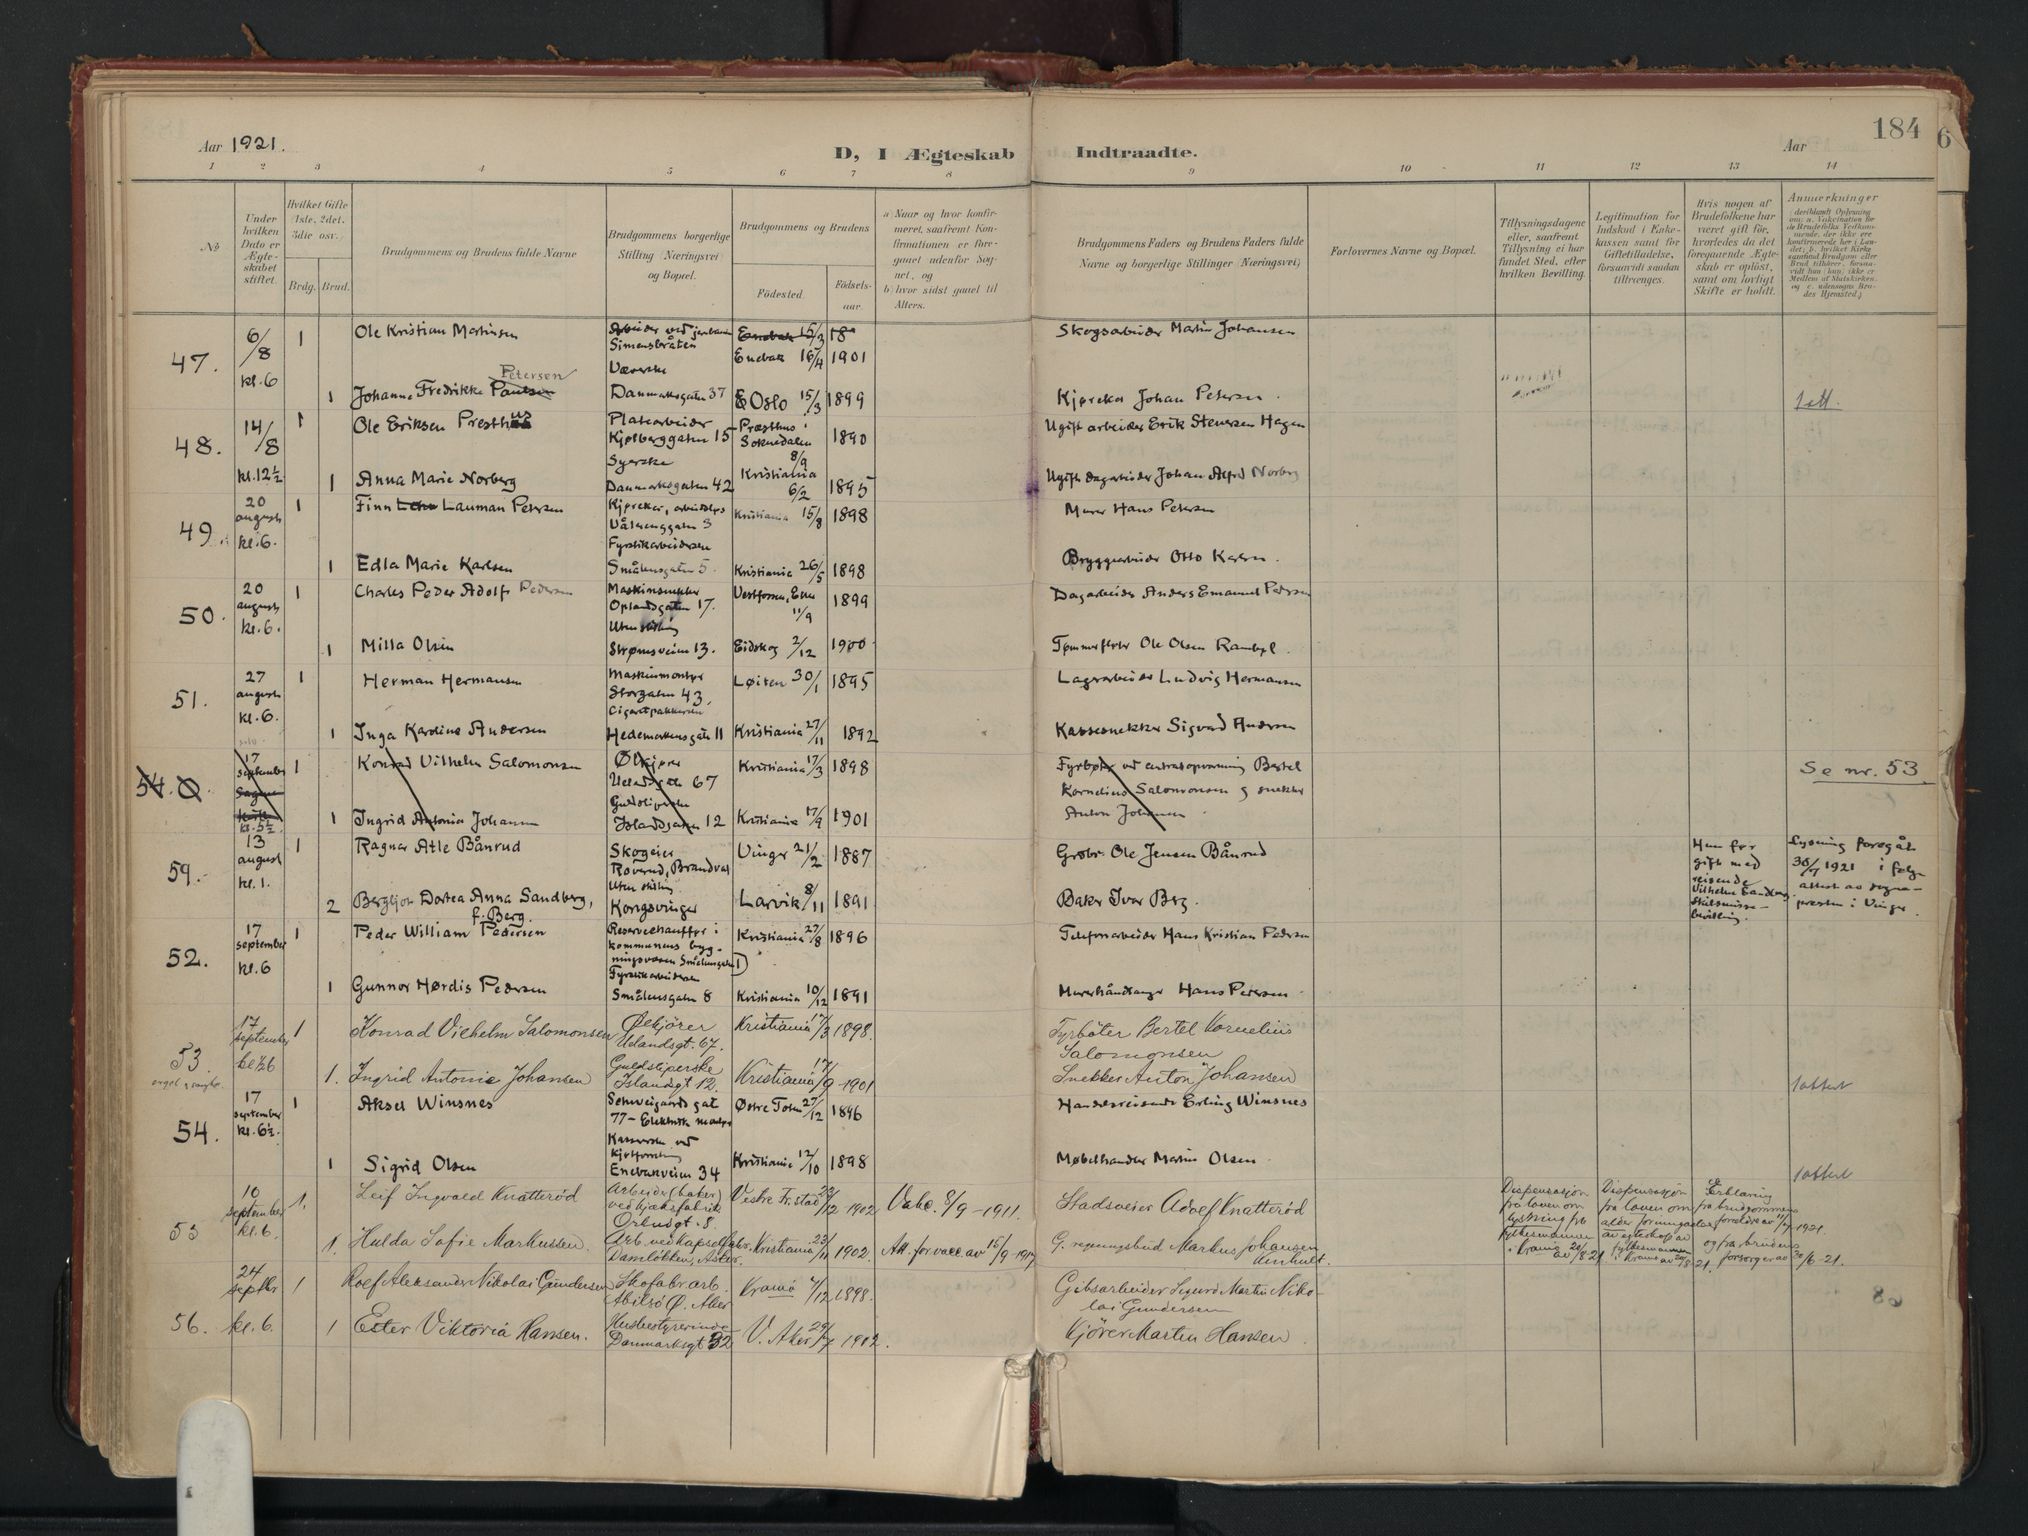 184
6
Aar 1921.
D, I Ægteskab Indtraadte.
Aar
1 2 3 4 5 6 7 8 9 10 11 12 13 14
No
Under hvilken Dato er Ægteskabet stiftet.
Hvilket Gifte (1ste, 2det, 3die osv.)
Brdg. Brud.
Brudgommens og Brudens fulde Navne
Brudgommens borgerlige Stilling (Næringsvei) og Bopæl.
Brudgommens og Brudens
Födested.
Födselsaar.
a) Naar og hvor konfirmeret, saafremt Konfirmationen er foregaaet udenfor Sognet, og
b) hvor sidst gaaet til Alters.
Brudgommens Faders og Brudens Faders fulde Navne og borgerlige Stillinger (Næringsvei)
Forlovernes Navne og Bopæl.
Tillysningsdagene eller, saafremt Tillysning ei har fundet Sted, efter hvilken Bevilling.
Legitimation for Indskud i Enkekassen samt for Giftetilladelse, forsaavidt saadan tiltrænges.
Hvis nogen af Brudefolkene har været gift för, hvorledes da det foregaaende Ægteskab er oplöst, samt om lovligt Skifte er holdt.
Anmærkninger
47. 6/8 kl. 6
1 Ole Kristian Martinsen
Arbeider ved jernbanen Simensbråten
Enebak 15/3 18
Enebak 16/4 1901
Skogsarbeider Martin Johansen
1 Johanne Fredrikke Paulsen Petersen
Væverske Danmarksgaten 37
Oslo 15/3 1899
Kjører Johan Petersen
1 att.
48. 14/8 kl. 12½
1 Ole Eriksen Presthus
Platearbeider Kjølberggaten 15
Præsthus i Soknedalen 8/9 1890
Ugift arbeider Erik Stenersen Hagen
1 Anna Marie Norberg
Syerske Danmarksgaten 42
Kristiania 6/2 1895
Ugift dagarbeider Johan Alfred Norberg
49. 20 august kl. 6.
1 Finn Lauman Petersen
Vålerenggaten 3
Kristiania 15/8 1898
Murer Hans Petersen
1 Edla Marie Karlsen
Fyrstikarbeiderske Smålensgaten 5.
Kristiania 26/5 1898
Bryggearbeider Otto Karlsen.
50. 20 august kl. 6.
1 Charles Peder Adolf Pedersen
Maskinsnekker Oplandsgaten 17.
Vestfossen, Eker 11/9 1899
Dagarbeider Anders Emanuel Pedersen
1 Milla Olsen
Uten stilling Strømsveien 13.
Eidskog 2/12 1900
Tømmerfløter Ole Olsen
51. 27 august kl. 6.
1 Herman Hermansen
Maskinmontør Storgaten 43.
Løiten 30/1 1895
Lagerarbeider Ludvig Hermansen
1 Inga Karoline Andersen
Cigaretpakkerske Hedemarkensgate 11
Kristiania 27/11 1892
Kassesnekker Sigvard Andersen
54. 17 september kl. 5½
1 Konrad Vilhelm Salomonsen
Ølkjører Uelandsgate 67
Kristiania 17/3 1898
Fyrbøter ved centralopvarmning Bertel Kornelius Salomonsen og snekker Anton Johansen
Se nr. 53.
1 Ingrid Antonia Johansen
Guldsliperske Islandsgaten 12
Kristiania 17/9 1901
59. 13 august kl. 1.
1 Ragnar Atle Bånrud
Skogeier Roverud, Brandval
Vinger 21/2 1887
Grdbr. Ole Jensen Bånrud
2 Bergljot Dortea Anna Sandberg, f. Berg.
Uten stilling Kongsvinger
Larvik 8/11 1891
Baker Ivar Berg.
Hun før gift med reisende Vilhelm Sandberg. Skilsmissebevilling.
Lysning foregåt 30/7 1921 i følge attest av sogneprest i Vinger.
52. 17 september kl. 6
1 Peder William Pedersen
Reservechauffør i kommunens bygningsvæsen Smålensgaten 1
Kristiania 27/8 1896
Telefonarbeider Hans Kristian Pedersen
1 Gunnor Hørdis Pedersen
Fyrstikarbeiderske Smålensgaten 8
Kristiania 10/12 1891
Murerhåndlanger Hans Petersen.
53 17 september kl ½6
1 Konrad Vilhelm Salomonsen
Ølkjörer Uelandsgt. 67.
Kristiania 17/3 1898.
Fyrböter Bertel Kornelius Salomonsen
1. Ingrid Antonie Johansen
Guldsliperske Islandsgt 12.
Kristiania 17/9 1901
Snekker Anton Johansen
1 attest
54. 17 september kl. 6½.
1 Aksel Winsnes
Schweigaards gat 77 – Elektrik montør
Østre Toten 27/12 1896
Handelsreisende Erling Winsnes
1 Sigrid Olsen
Enebakveien 34
Kristiania 12/10 1898
Møbelhandler Martin Olsen
1 attest
55 10 september kl. 6.
1. Leif Ingvald Knatteröd
Arbeider (baker) ved kjæksfabrik
Vestre Fr.stad 1902
Vakc. 8/9 – 1911.
Stadsveier Adolf Knatteröd
Dispensasjon fra loven om lysning fra fylkesmannen i Krania av 20/8 21
Dispensasjon fra loven om alder for inngaaelse av egteskap av fylkesmannen i Krania av 20/8 21.
Erklæring fra brudgommens foreldre av 11/7 1921. og fra brudens forsörger av 20/6 -21.
1. Hulda Sofie Markussen.
Arb. ved kapselfabr. Damlökken, Aker.
Kristiania 23/11 1902.
Att. for vacc. av 15/9 – 1917
Markus Johansen
56. 24 septbr kl. 6.
1 Rolf Aleksander Nikolai Gundersen
Skofabr arb. Abilsö Ø. Aker
Krania 7/12 1898.
Gibsarbeider Sigurd Martin Nikolai Gundersen
1 Ester Viktoria Hansen.
Husbestyrerinde Danmarksgt 32
V. Aker 29/7 1902.
Kjörer Martin Hansen